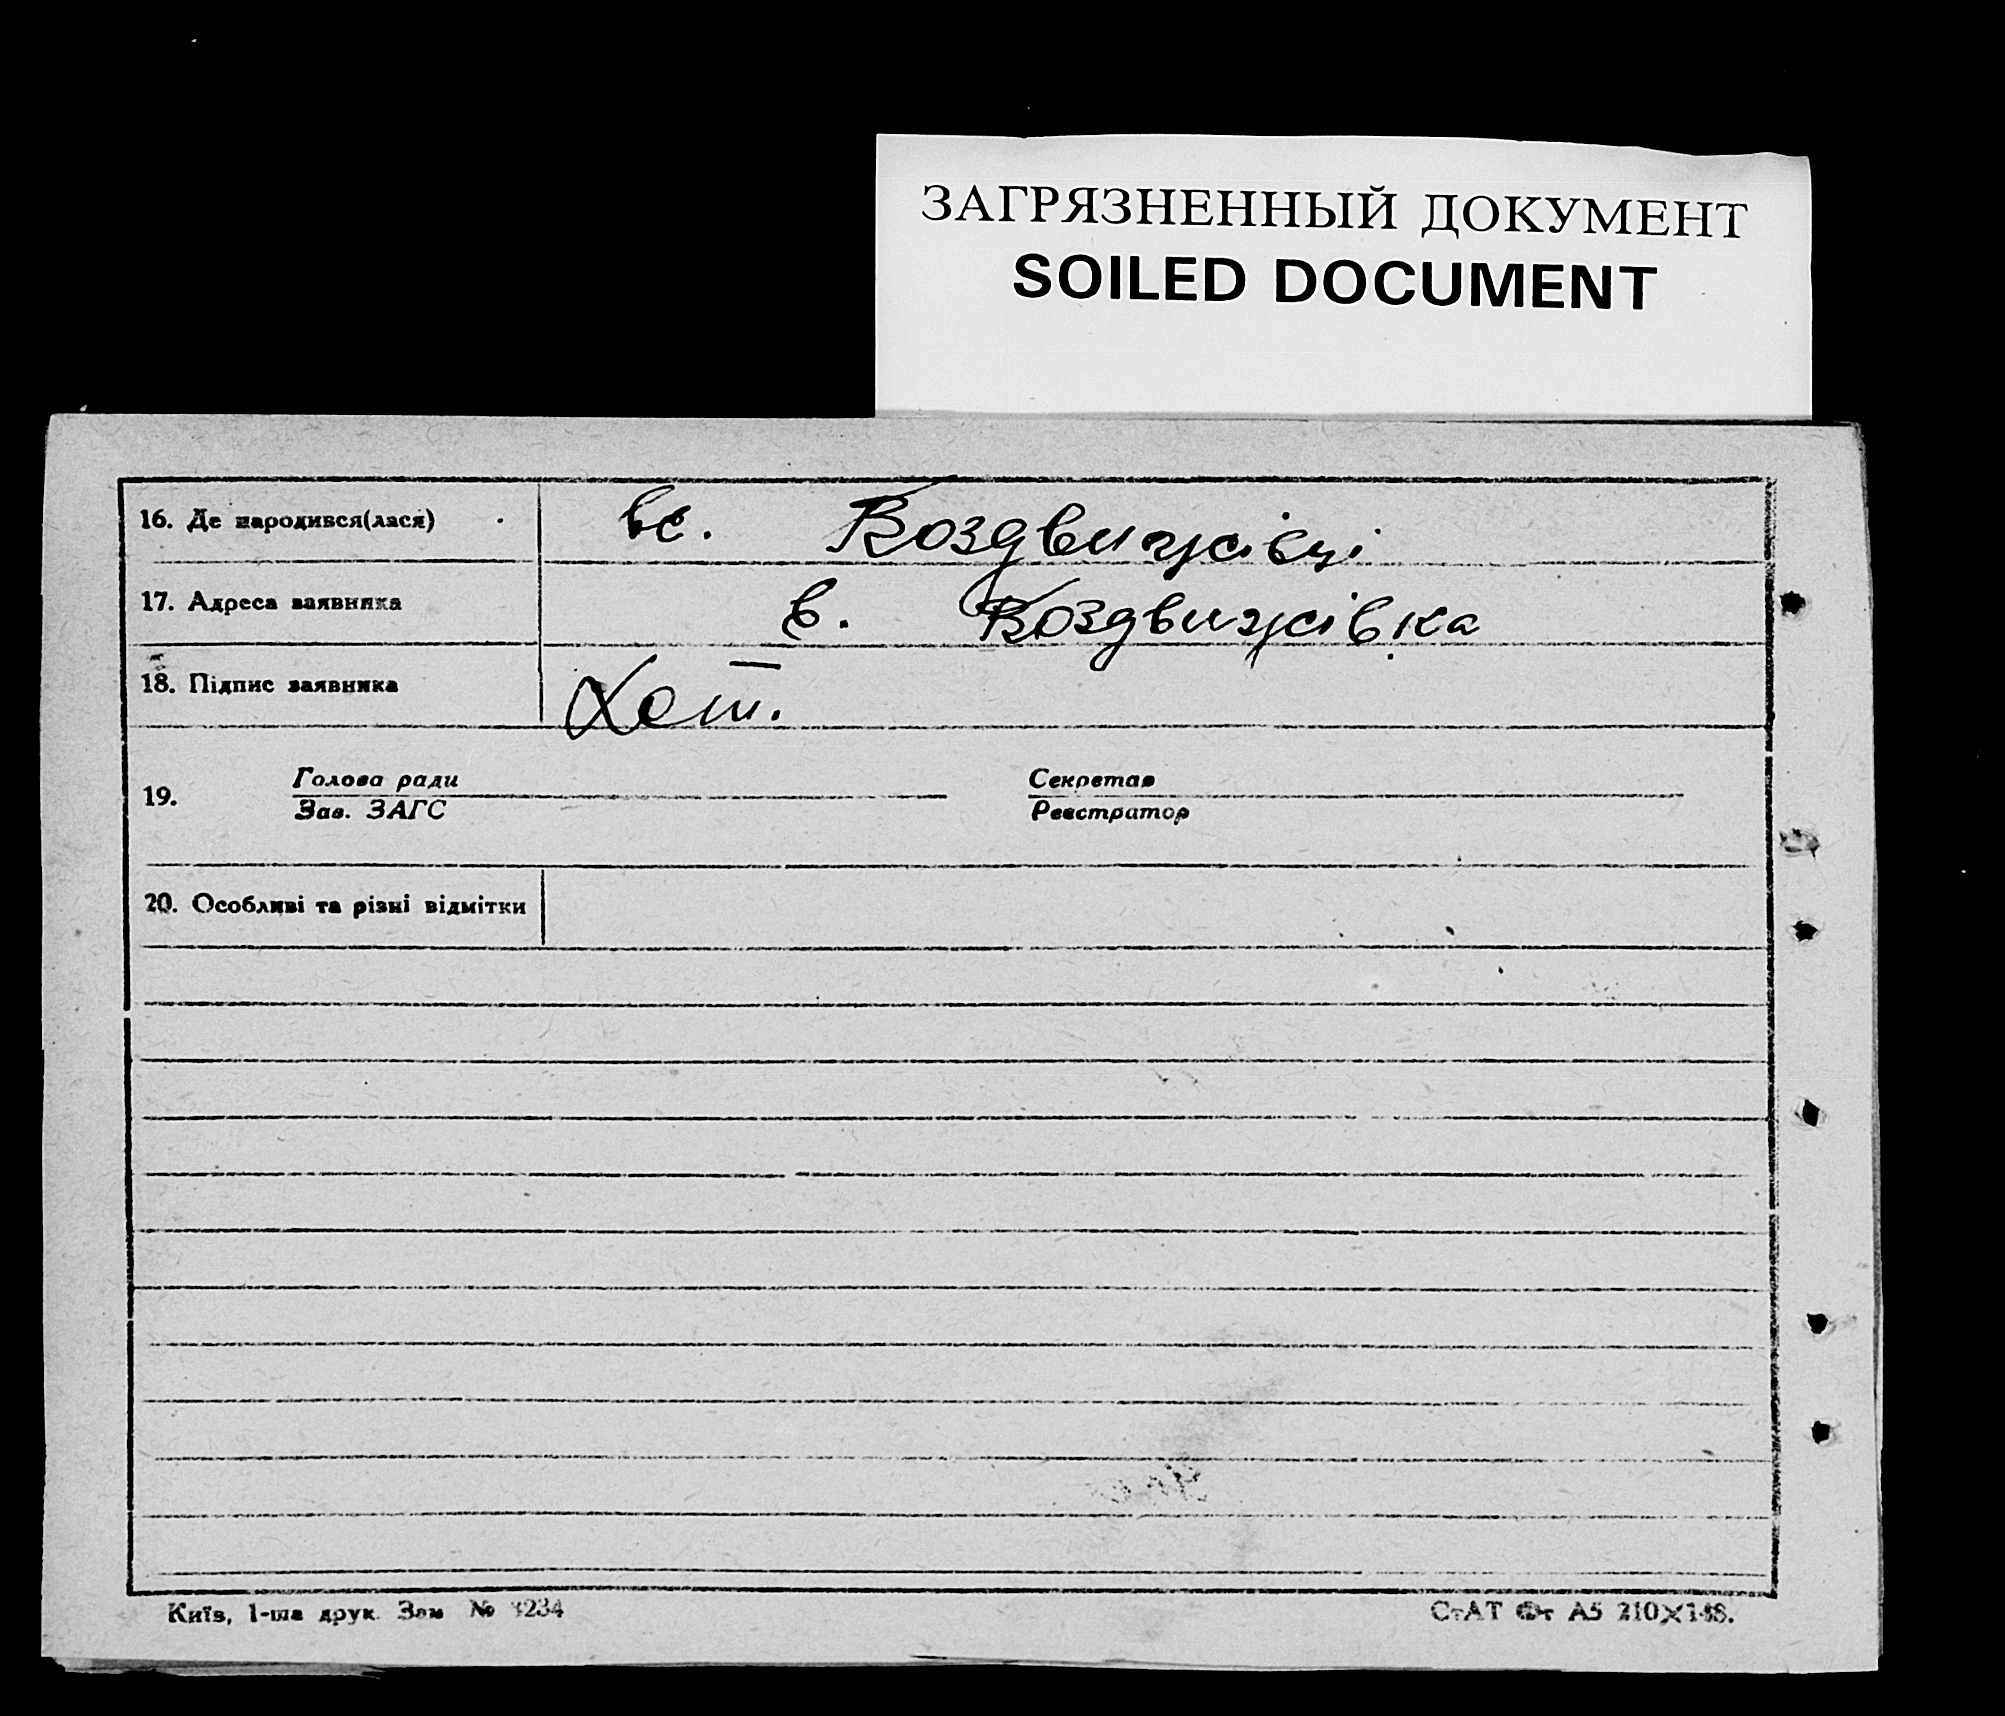 ЗАГРЯЗНЕННЫЙ ДОКУМЕНТ
SOILED DOCUMENT
16. Де народився(лася) вс. Воздвижівці
17. Адреса заявника в. Воздвижівка
18. Підпис заявника
19. Голова ради Секретар
Зав. ЗАГС Реєстратор
20. Особливі та різні відмітки
Київ, 1-ша друк. Зам №
СтАТ Фт А5 210×148.